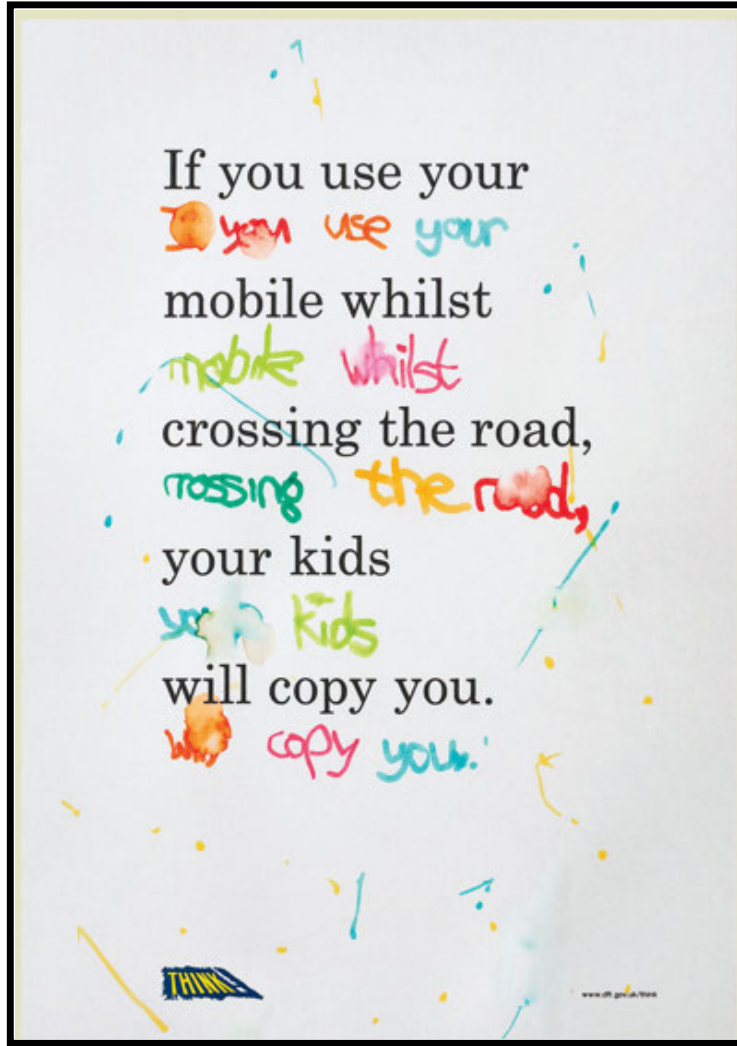 If you use your
you use your
mobile whilst
mobile whilst
crossing the road,
crossing the road,
your kids
kids
will copy you.
copy you.
THINK!
www.dft.gov.uk/think